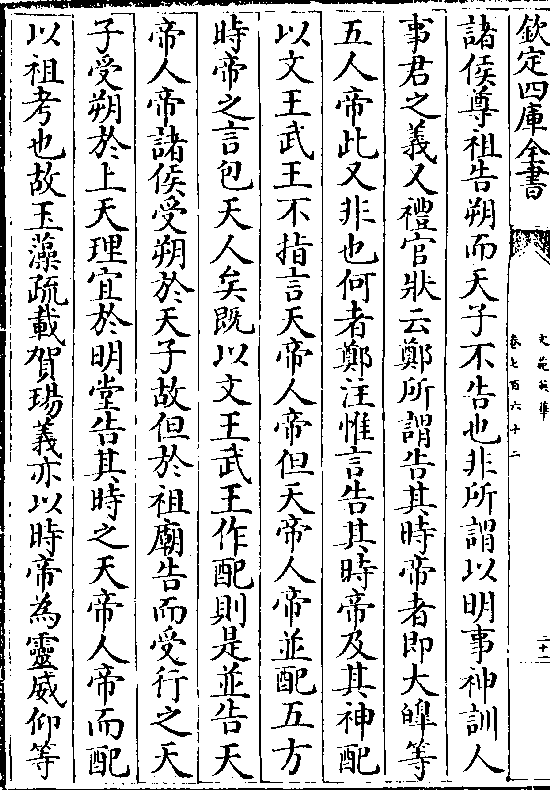 欽定四庫全書
文苑英華
卷七百六十二
二十二
諸侯尊祖告朔而天子不告也非所謂以明事神訓人
事君之義又禮官狀云鄭所謂告其時帝者即大皥等
五人帝此又非也何者鄭注惟言告其時帝及其神配
以文王武王不指言天帝人帝但天帝人帝並配五方
時帝之言包天人矣既以文王武王作配則是並告天
帝人帝諸侯受朔於天子故但於祖廟告而受行之天
子受朔於上天理宜於明堂告其時之天帝人帝而配
以祖考也故玉藻疏載賀瑒義亦以時帝為靈威仰等